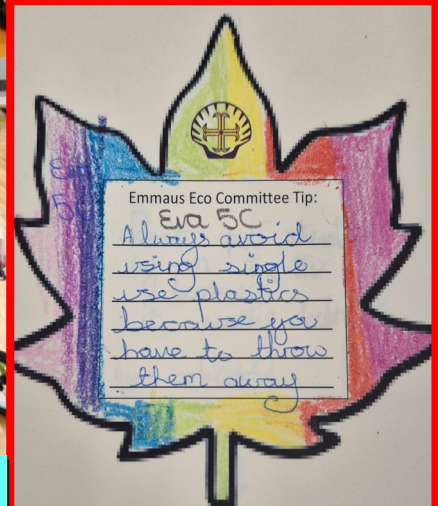 Emmaus Eco Committee Tip:
Eva 5C
Always avoid
using single
use plastics
because you
have to throw
them away